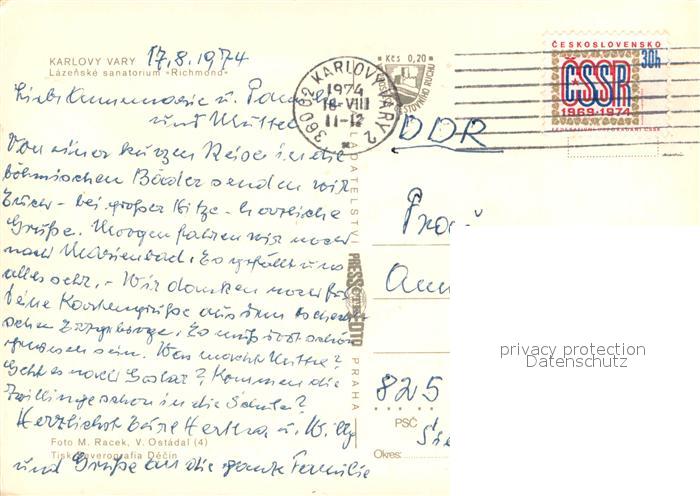 KARLOVY VARY 17.8.1974
Lázeňské sanatorium »Richmond«
Liebe Annemarie u.
und Mutter
Von einer kurzen Reise in die
böhmischen Bäder senden wir
Euch - bei großer Hitze - herzliche
Grüße. Morgen fahren wir noch
nach Marienbad. Es gefällt uns
alles sehr. - Wir danken noch für
Deine Kartengrüße aus dem
schen Erzgebirge. Es muß dort schön
gewesen sein. Was macht Mutter?
Geht es nach Goslar? Kommen die
Zwillinge schon in die Schule?
Herzlichst Eure Hertha u. Willy
Foto M. Racek, V. Ostádal (4)
Tisk Severografia Děčín
und Grüße an die ganze Familie
360 02 KARLOVY VARY 2
1974
18-VIII
11-12
Kčs 0,20
CESTOVNÍHO RUCHU
ČESKOSLOVENSKO
30h
ČSSR
1969-1974
FEDERATIVNÍ USPOŘÁDÁNÍ ČSSR
VYDAVATELSTVÍ
PRESSFOTO
EDITO
PRAHA
DDR
825
PSČ
Okres:
privacy protection
Datenschutz